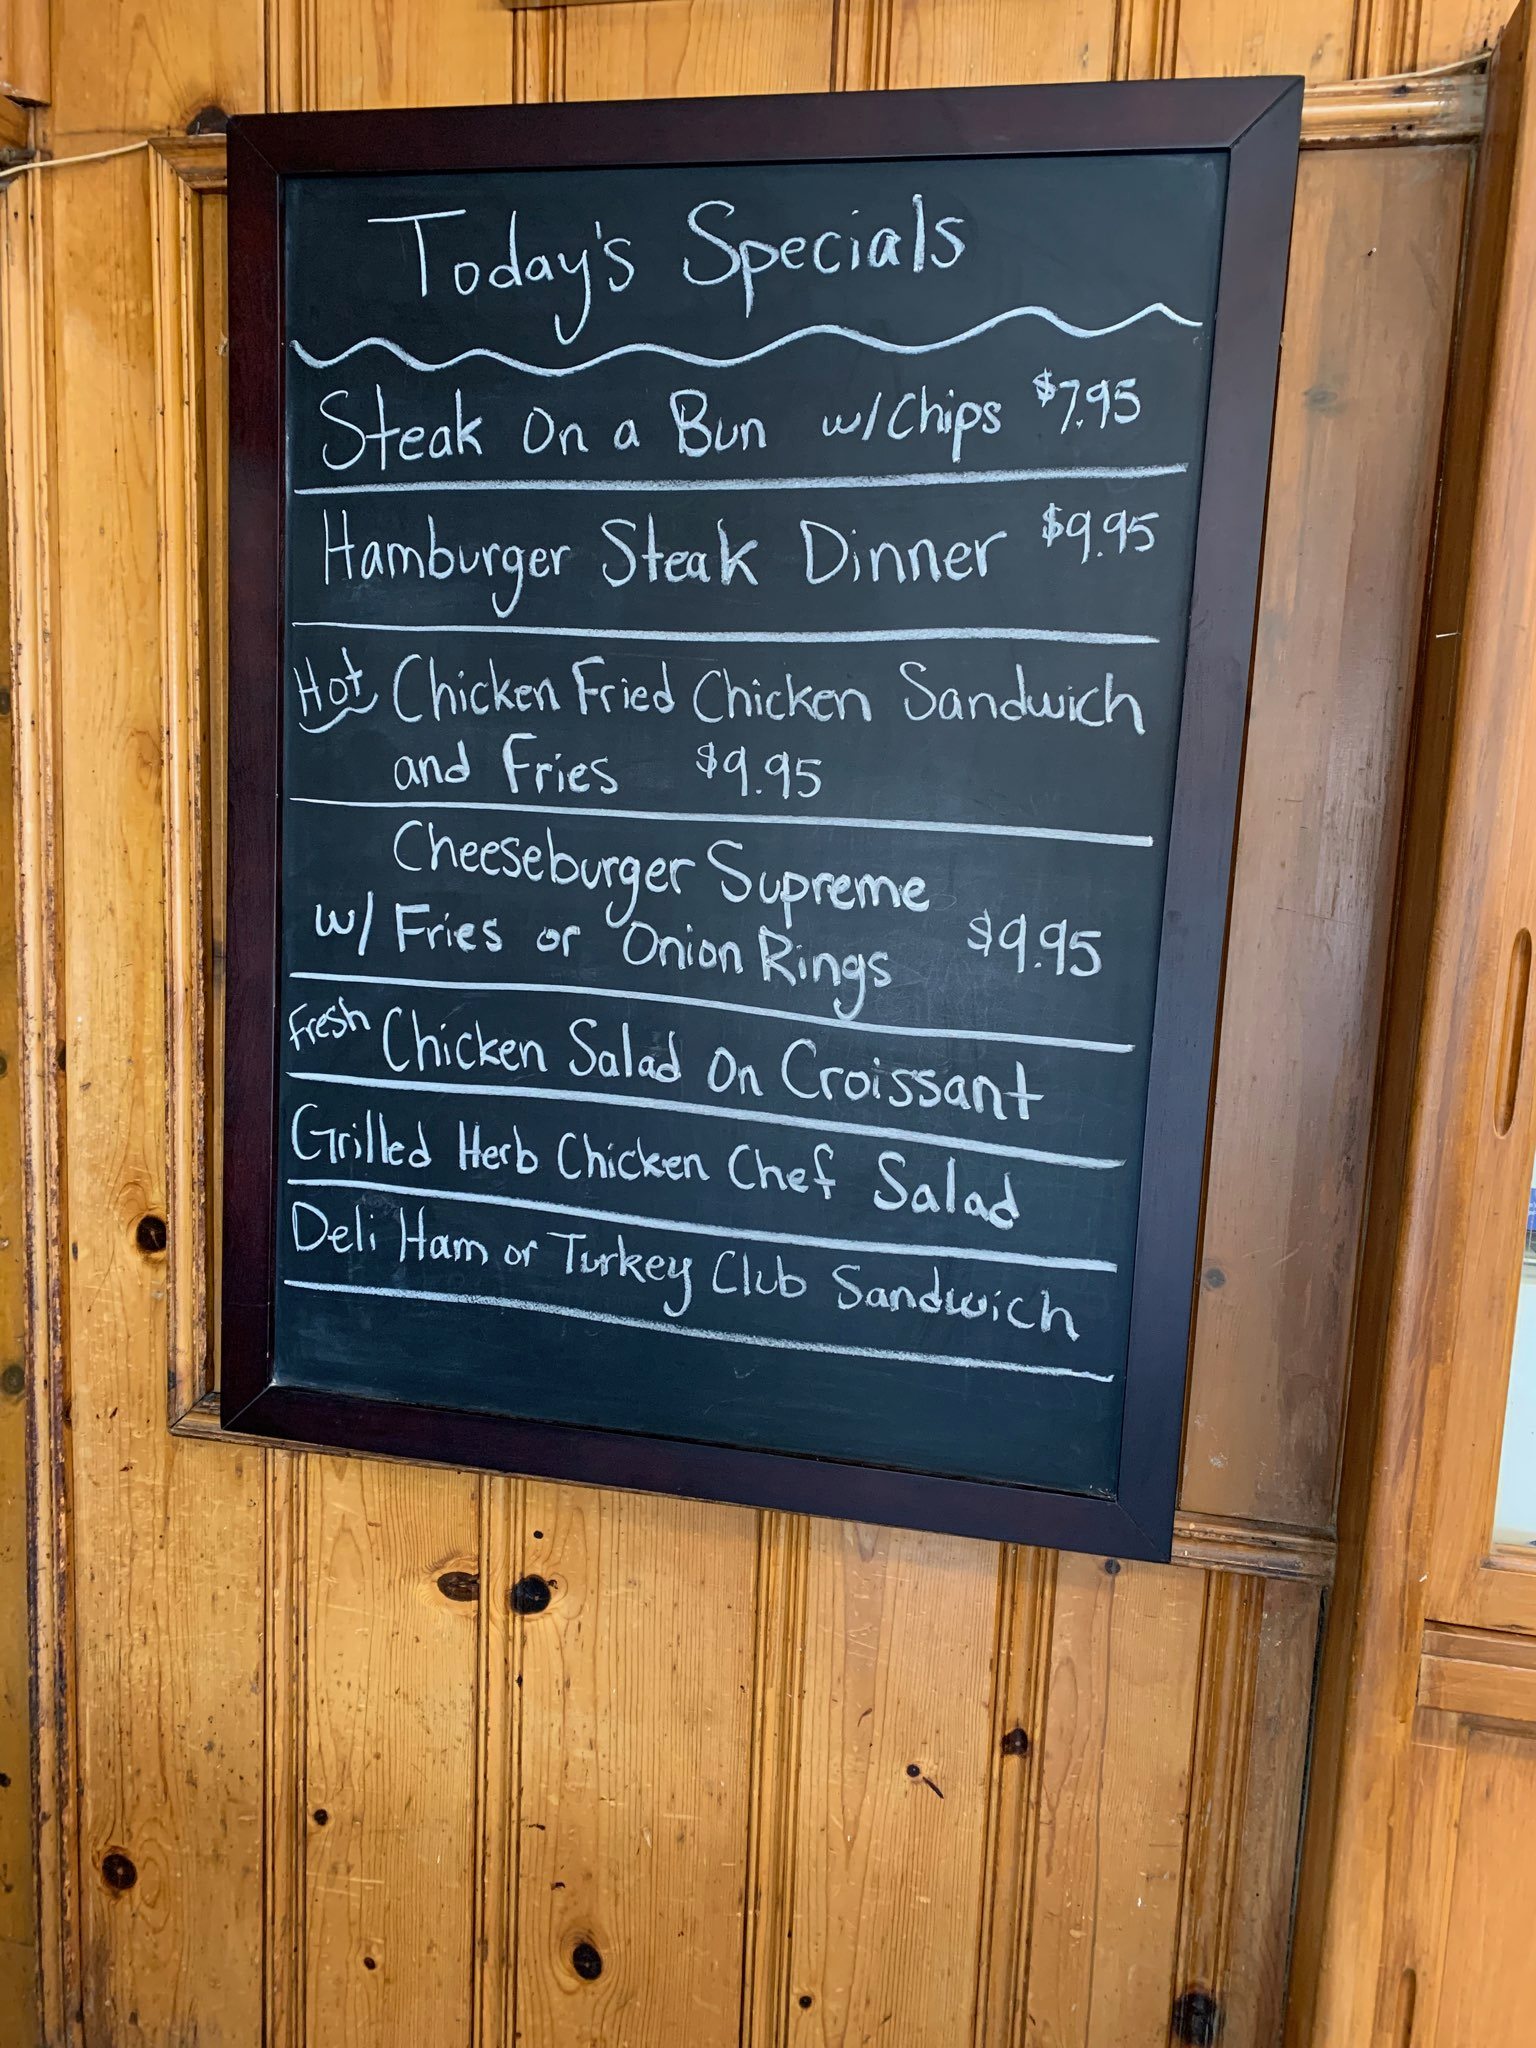 Today's Specials
Steak On a Bun w/Chips $7.95
Hamburger Steak Dinner $9.95
Hot Chicken Fried Chicken Sandwich
and Fries $9.95
Cheeseburger Supreme
w/ Fries or Onion Rings $9.95
Fresh Chicken Salad On Croissant
Grilled Herb Chicken Chef Salad
Deli Ham or Turkey Club Sandwich